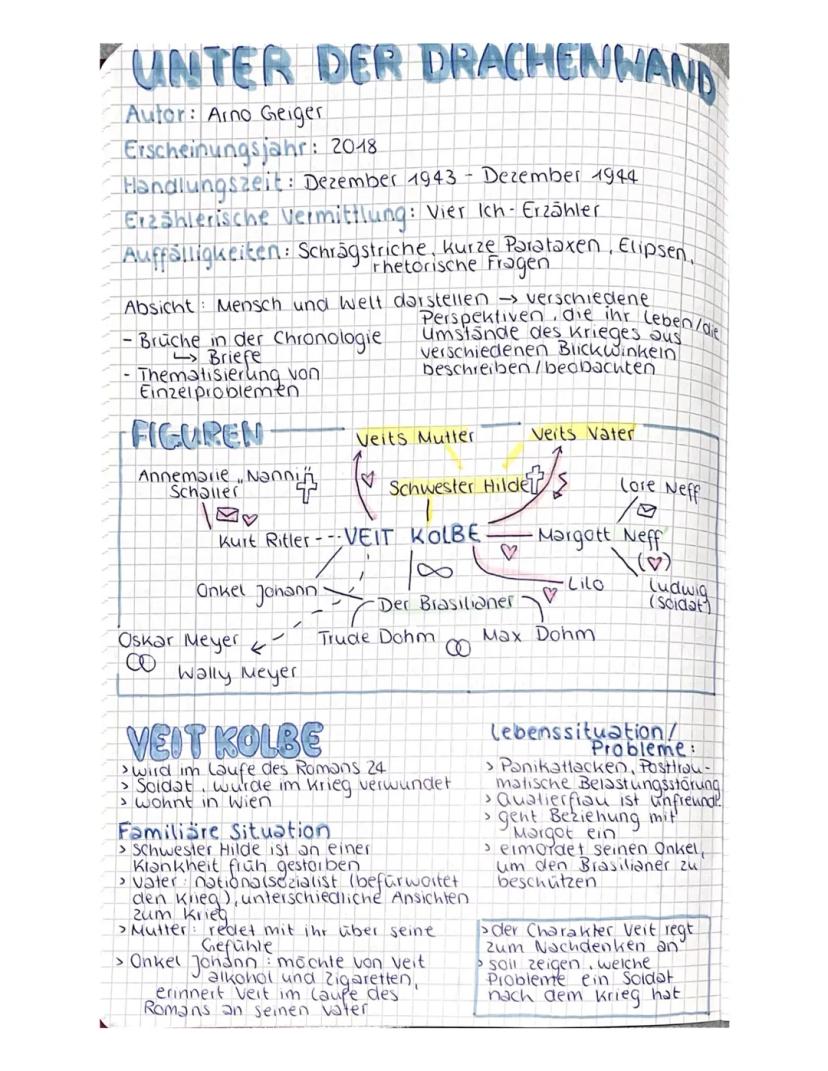 UNTER DER DRACHENWAND
Autor: Arno Geiger
Erscheinungsjahr: 2018
Handlungszeit: Dezember 1943 - Dezember 1944
Erzählerische Vermittlung: Vier Ich-Erzähler
Auffälligkeiten: Schrägstriche, kurze Parataxen, Elipsen,
rhetorische Fragen
Absicht: Mensch und Welt darstellen → verschiedene
Perspektiven, die ihr Leben/die
Umstände des Krieges aus
verschiedenen Blickwinkeln
beschreiben/beobachten
- Brüche in der Chronologie
↳ Briefe
- Thematisierung von
Einzelproblemen
FIGUREN
Veits Mutter
Veits Vater
Annemarie „Nanni“
Schaller
Schwester Hilde
Lore Neff
Kurt Ritler --- VEIT KOLBE
Margott Neff
Onkel Johann
Lilo
Ludwig
(Soldat)
Der Brasilianer
Oskar Meyer
Trude Dohm
Max Dohm
Wally Meyer
VEIT KOLBE
> wird im Laufe des Romans 24
> Soldat, wurde im Krieg verwundet
> wohnt in Wien
Familiäre Situation
> Schwester Hilde ist an einer
Krankheit früh gestorben
> Vater: nationalsozialist (befürwortet
den Krieg), unterschiedliche Ansichten
zum Krieg
> Mutter: redet mit ihr über seine
Gefühle
> Onkel Johann: möchte von Veit
alkohol und Zigaretten,
erinnert Veit im Laufe des
Romans an seinen Vater
Lebenssituation/
Probleme:
> Panikattacken, Posttrau-
matische Belastungsstörung
> Quatierfrau ist unfreundl.
> geht Beziehung mit
Margot ein
> ermordet seinen Onkel,
um den Brasilianer zu
beschützen
> der Charakter Veit regt
zum Nachdenken an
> soll zeigen, welche
Probleme ein Soldat
nach dem Krieg hat